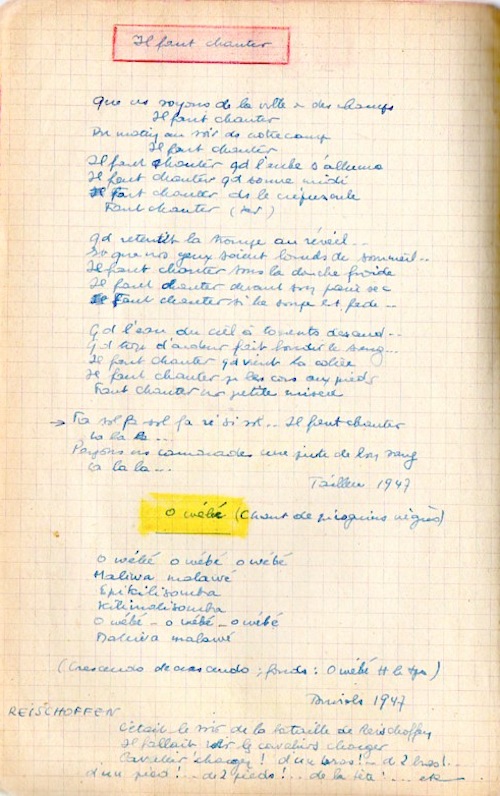 Il faut chanter
Que ns soyons de la ville ou des champs
Il faut chanter
Du matin au soir ds notre camp
Il faut chanter
Il faut chanter qd l'aube s'allume
Il faut chanter qd sonne midi
Il faut chanter ds le crépuscule
Faut chanter (ter)
Qd retentit la trompe au réveil...
Et que nos yeux soient lourds de sommeil..
Il faut chanter sous la douche froide
Il faut chanter devant son pain sec
Faut chanter si la soupe est fade..
Qd l'eau du ciel à torrents descend...
Qd trop d'ardeur fait bondir le sang...
Il faut chanter qd vient la colère
Il faut chanter pr les cors aux pieds
Faut chanter nr petite misère
→ Fa sol fa sol fa ré si sol... Il faut chanter
la la la...
Payons ns camarades une pinte de bon sang
la la la...
Taillen 1947
O wébé (Chant de piroguiers nègres)
O wébé o wébé o wébé
Maliwa malawé
Epikilisomba
Kilimalisomba
O wébé - o wébé - o wébé
Maliwa malawé
(Crescendo decrescendo; fonds: O wébé tt le tps)
1947
REISCHOFFEN
C'était le soir de la bataille de Reischoffen
Il fallait voir le cavaliers charger
Cavalier chargez! d'un bras!.. de 2 bras!..
d'un pied!.. de 2 pieds!.. de la tête!... etc